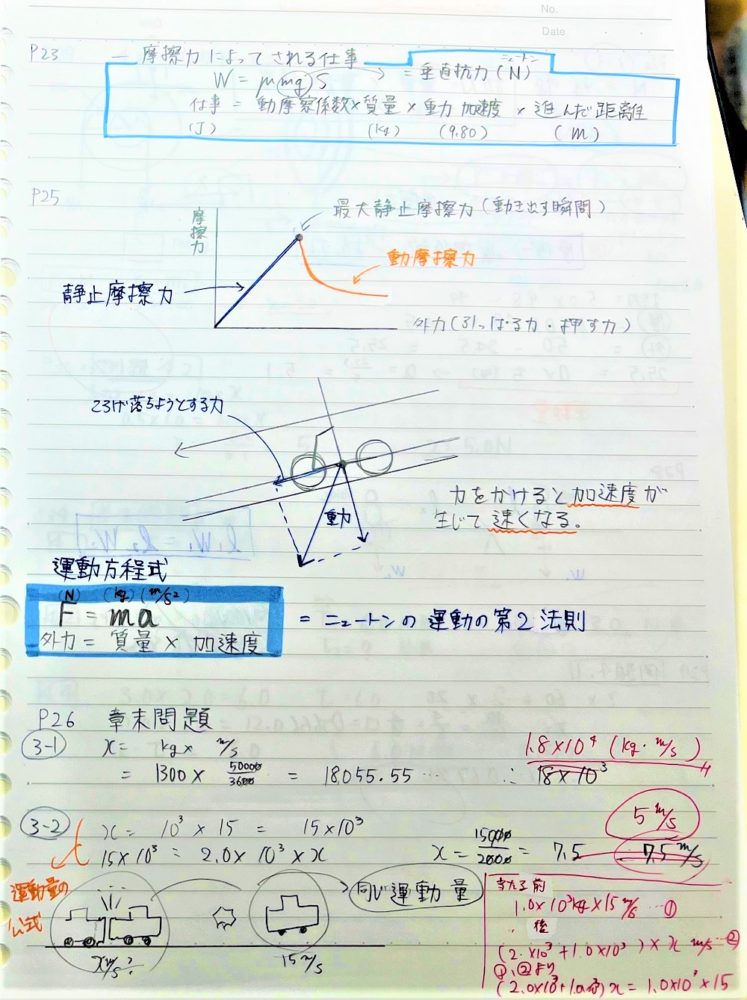 No.
Date
P23 ― 摩擦力によってされる仕事
ニュートン
W = μmgS = 垂直抗力(N)
仕事 = 動摩察係数×質量×重力加速度×進んだ距離
(J) (kg) (9.80) (m)
P25
摩擦力
最大静止摩擦力(動き出す瞬間)
動摩擦力
静止摩擦力
外力(引っぱる力・押す力)
ころげ落ちようとする力
重力
力をかけると加速度が
生じて速くなる。
運動方程式
(N) (kg) (m/s²)
F = ma
外力 = 質量 × 加速度
= ニュートンの運動の第2法則
P26 章末問題
3-1 x = kg × m/s
= 1300 × 50000/3600 = 18055.55… ∴ 18×10³
1.8×10⁴ (kg・m/s)
3-2 x = 10³ × 15 = 15×10³
15×10³ = 2.0 × 10³ × x
x = 15000/2000 = 7.5 7.5 m/s
5 m/s
運動量の
公式
同じ運動量
xm/s?
15m/s
当たる前
1.0×10³kg×15m/s …①
後
(2.×10³+1.0×10³)×x m/s …②
①,②より
(2.0×10³+1.0×10³)x = 1.0×10³×15